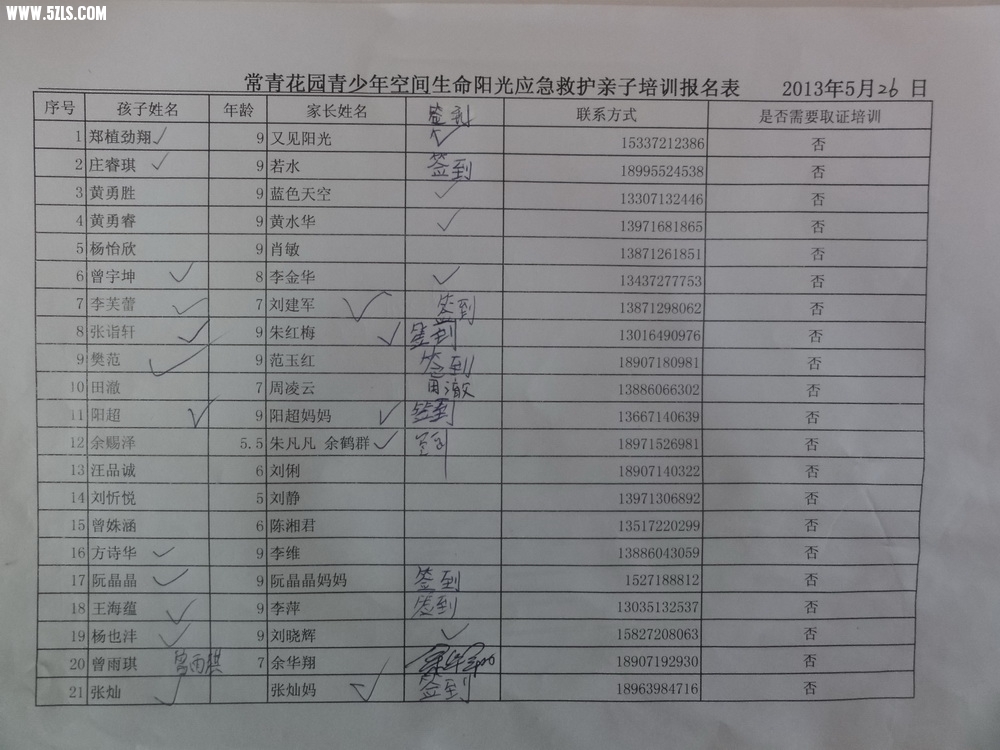 WWW.5ZLS.COM
常青花园青少年空间生命阳光应急救护亲子培训报名表 2013年5月26日
序号 孩子姓名 年龄 家长姓名 签到 联系方式 是否需要取证培训
1 郑植劲翔 ✓ 9 又见阳光 ✓ 15337212386 否
2 庄睿琪 ✓ 9 若水 签到 18995524538 否
3 黄勇胜 9 蓝色天空 ✓ 13307132446 否
4 黄勇睿 9 黄水华 ✓ 13971681865 否
5 杨怡欣 9 肖敏 13871261851 否
6 曾宇坤 ✓ 8 李金华 ✓ 13437277753 否
7 李芙蕾 ✓ 7 刘建军 ✓ 签到 13871298062 否
8 张诣轩 ✓ 9 朱红梅 ✓ 签到 13016490976 否
9 樊范 ✓ 9 范玉红 签到 18907180981 否
10 田澈 7 周凌云 田澈 13886066302 否
11 阳超 ✓ 9 阳超妈妈 ✓ 签到 13667140639 否
12 余赐泽 5.5 朱凡凡 余鹤群 ✓ 签到 18971526981 否
13 汪品诚 6 刘俐 18907140322 否
14 刘忻悦 5 刘静 13971306892 否
15 曾姝涵 6 陈湘君 13517220299 否
16 方诗华 ✓ 9 李维 13886043059 否
17 阮晶晶 ✓ 9 阮晶晶妈妈 签到 1527188812 否
18 王海蕴 ✓ 9 李萍 签到 13035132537 否
19 杨也沣 ✓ 9 刘晓辉 ✓ 15827208063 否
20 曾雨琪 曾雨琪 7 余华翔 18907192930 否
21 张灿 ✓ 张灿妈 ✓ 签到 18963984716 否